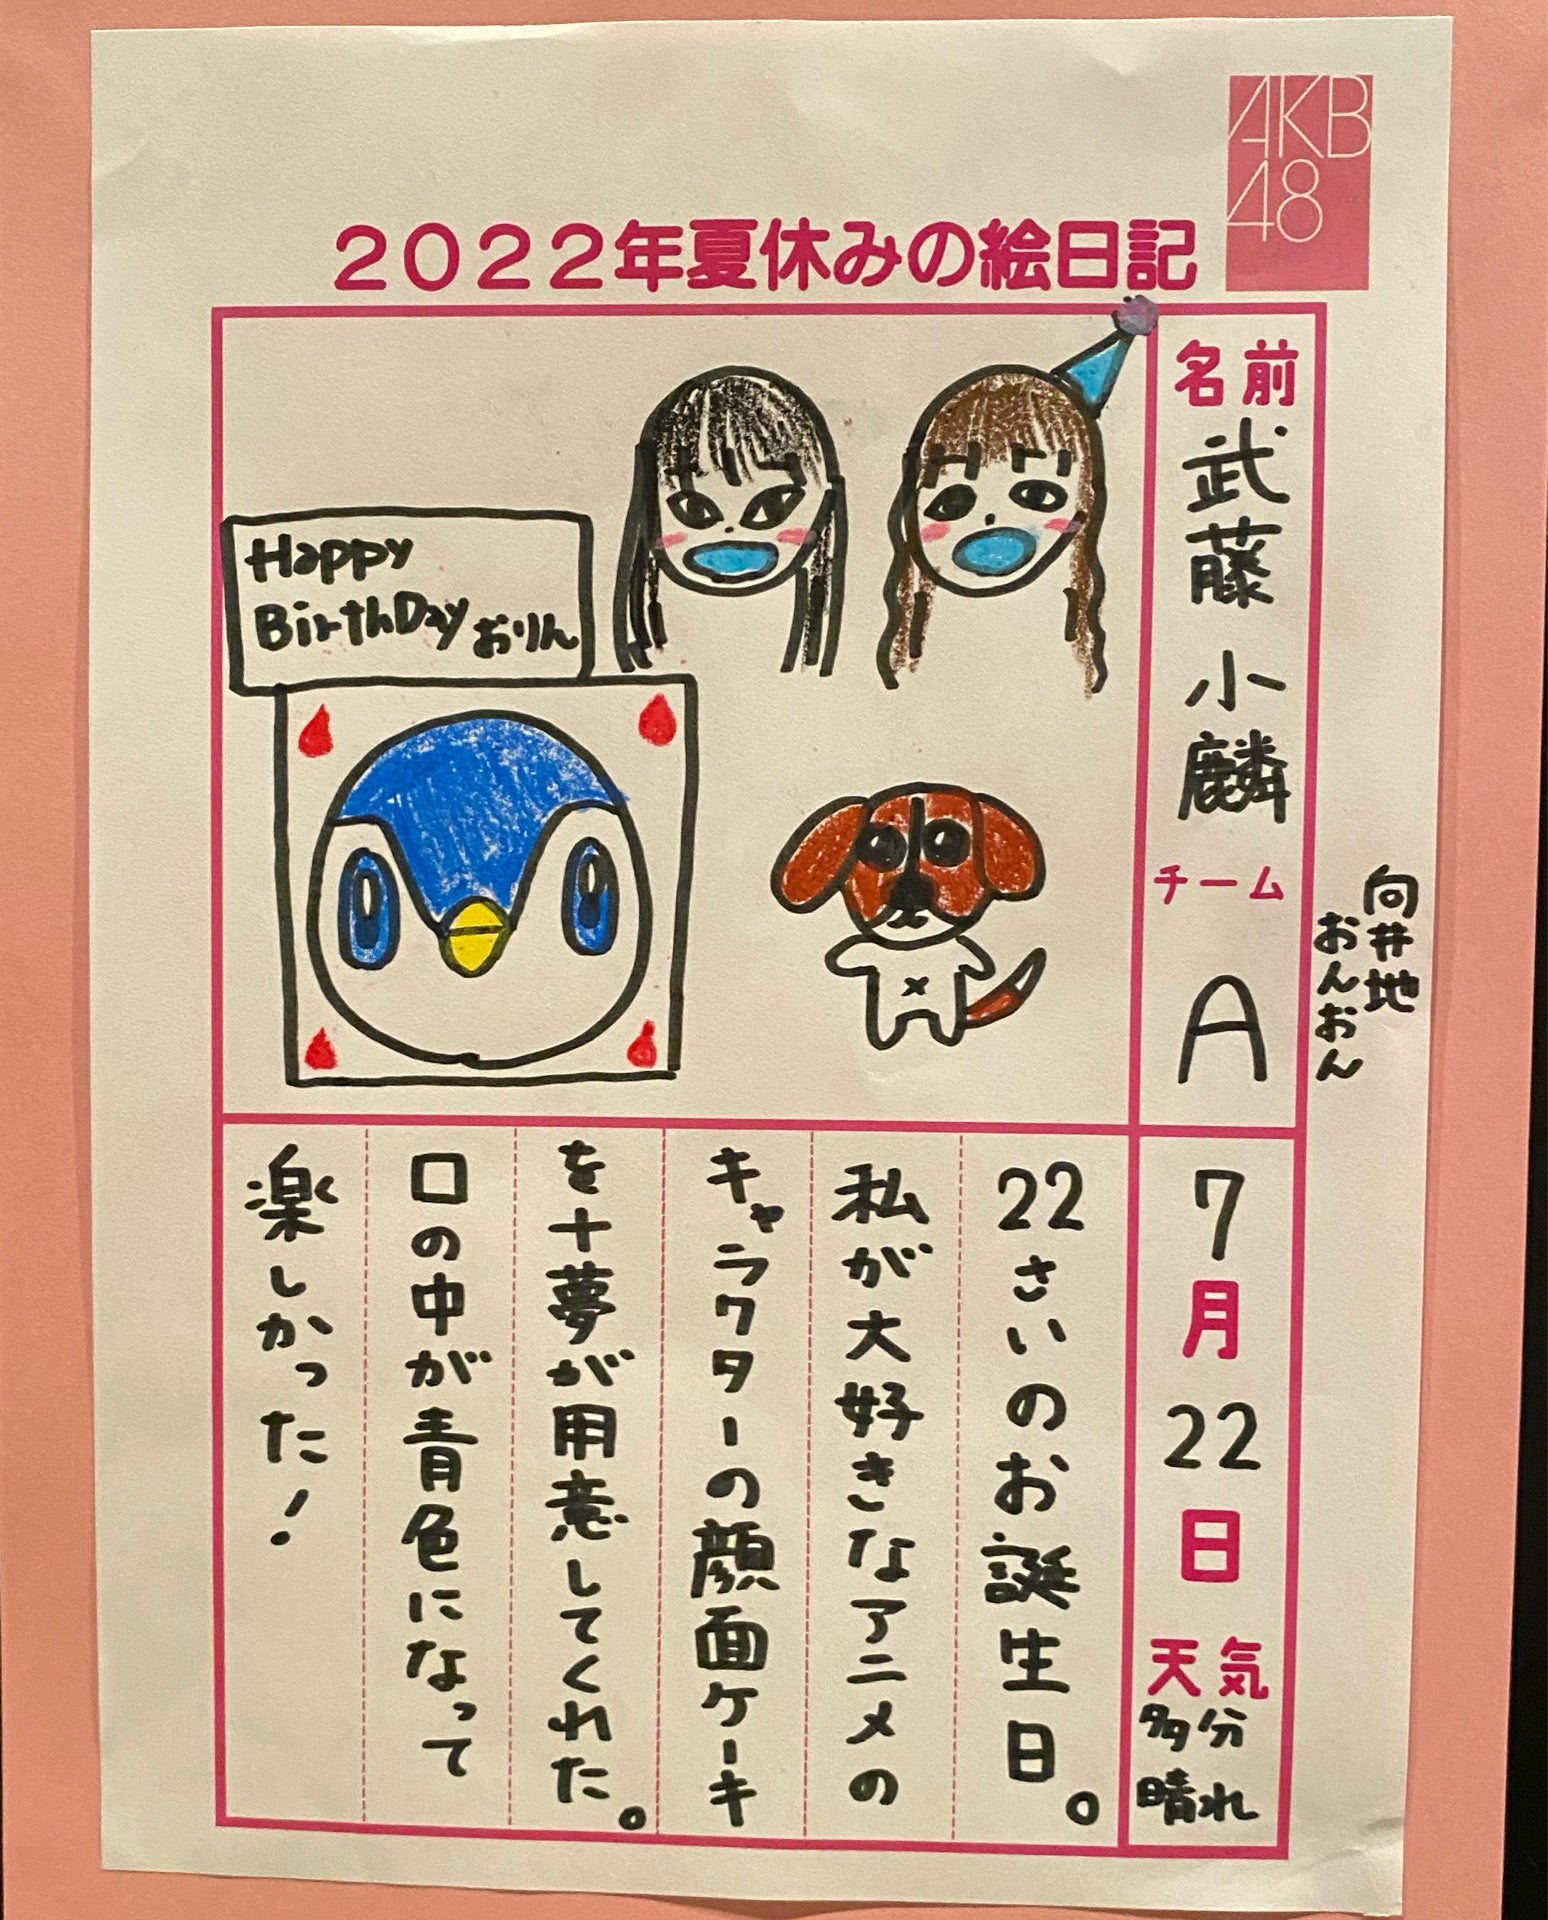 AKB
48
2022年夏休みの絵日記
名前
武藤 小麟
チーム
A
向井地
おんおん
Happy
BirthDay おりん
7月22日
天気
多分
晴れ
22さいのお誕生日。
私が大好きなアニメの
キャラクターの顔面ケーキ
を十夢が用意してくれた。
口の中が青色になって
楽しかった!